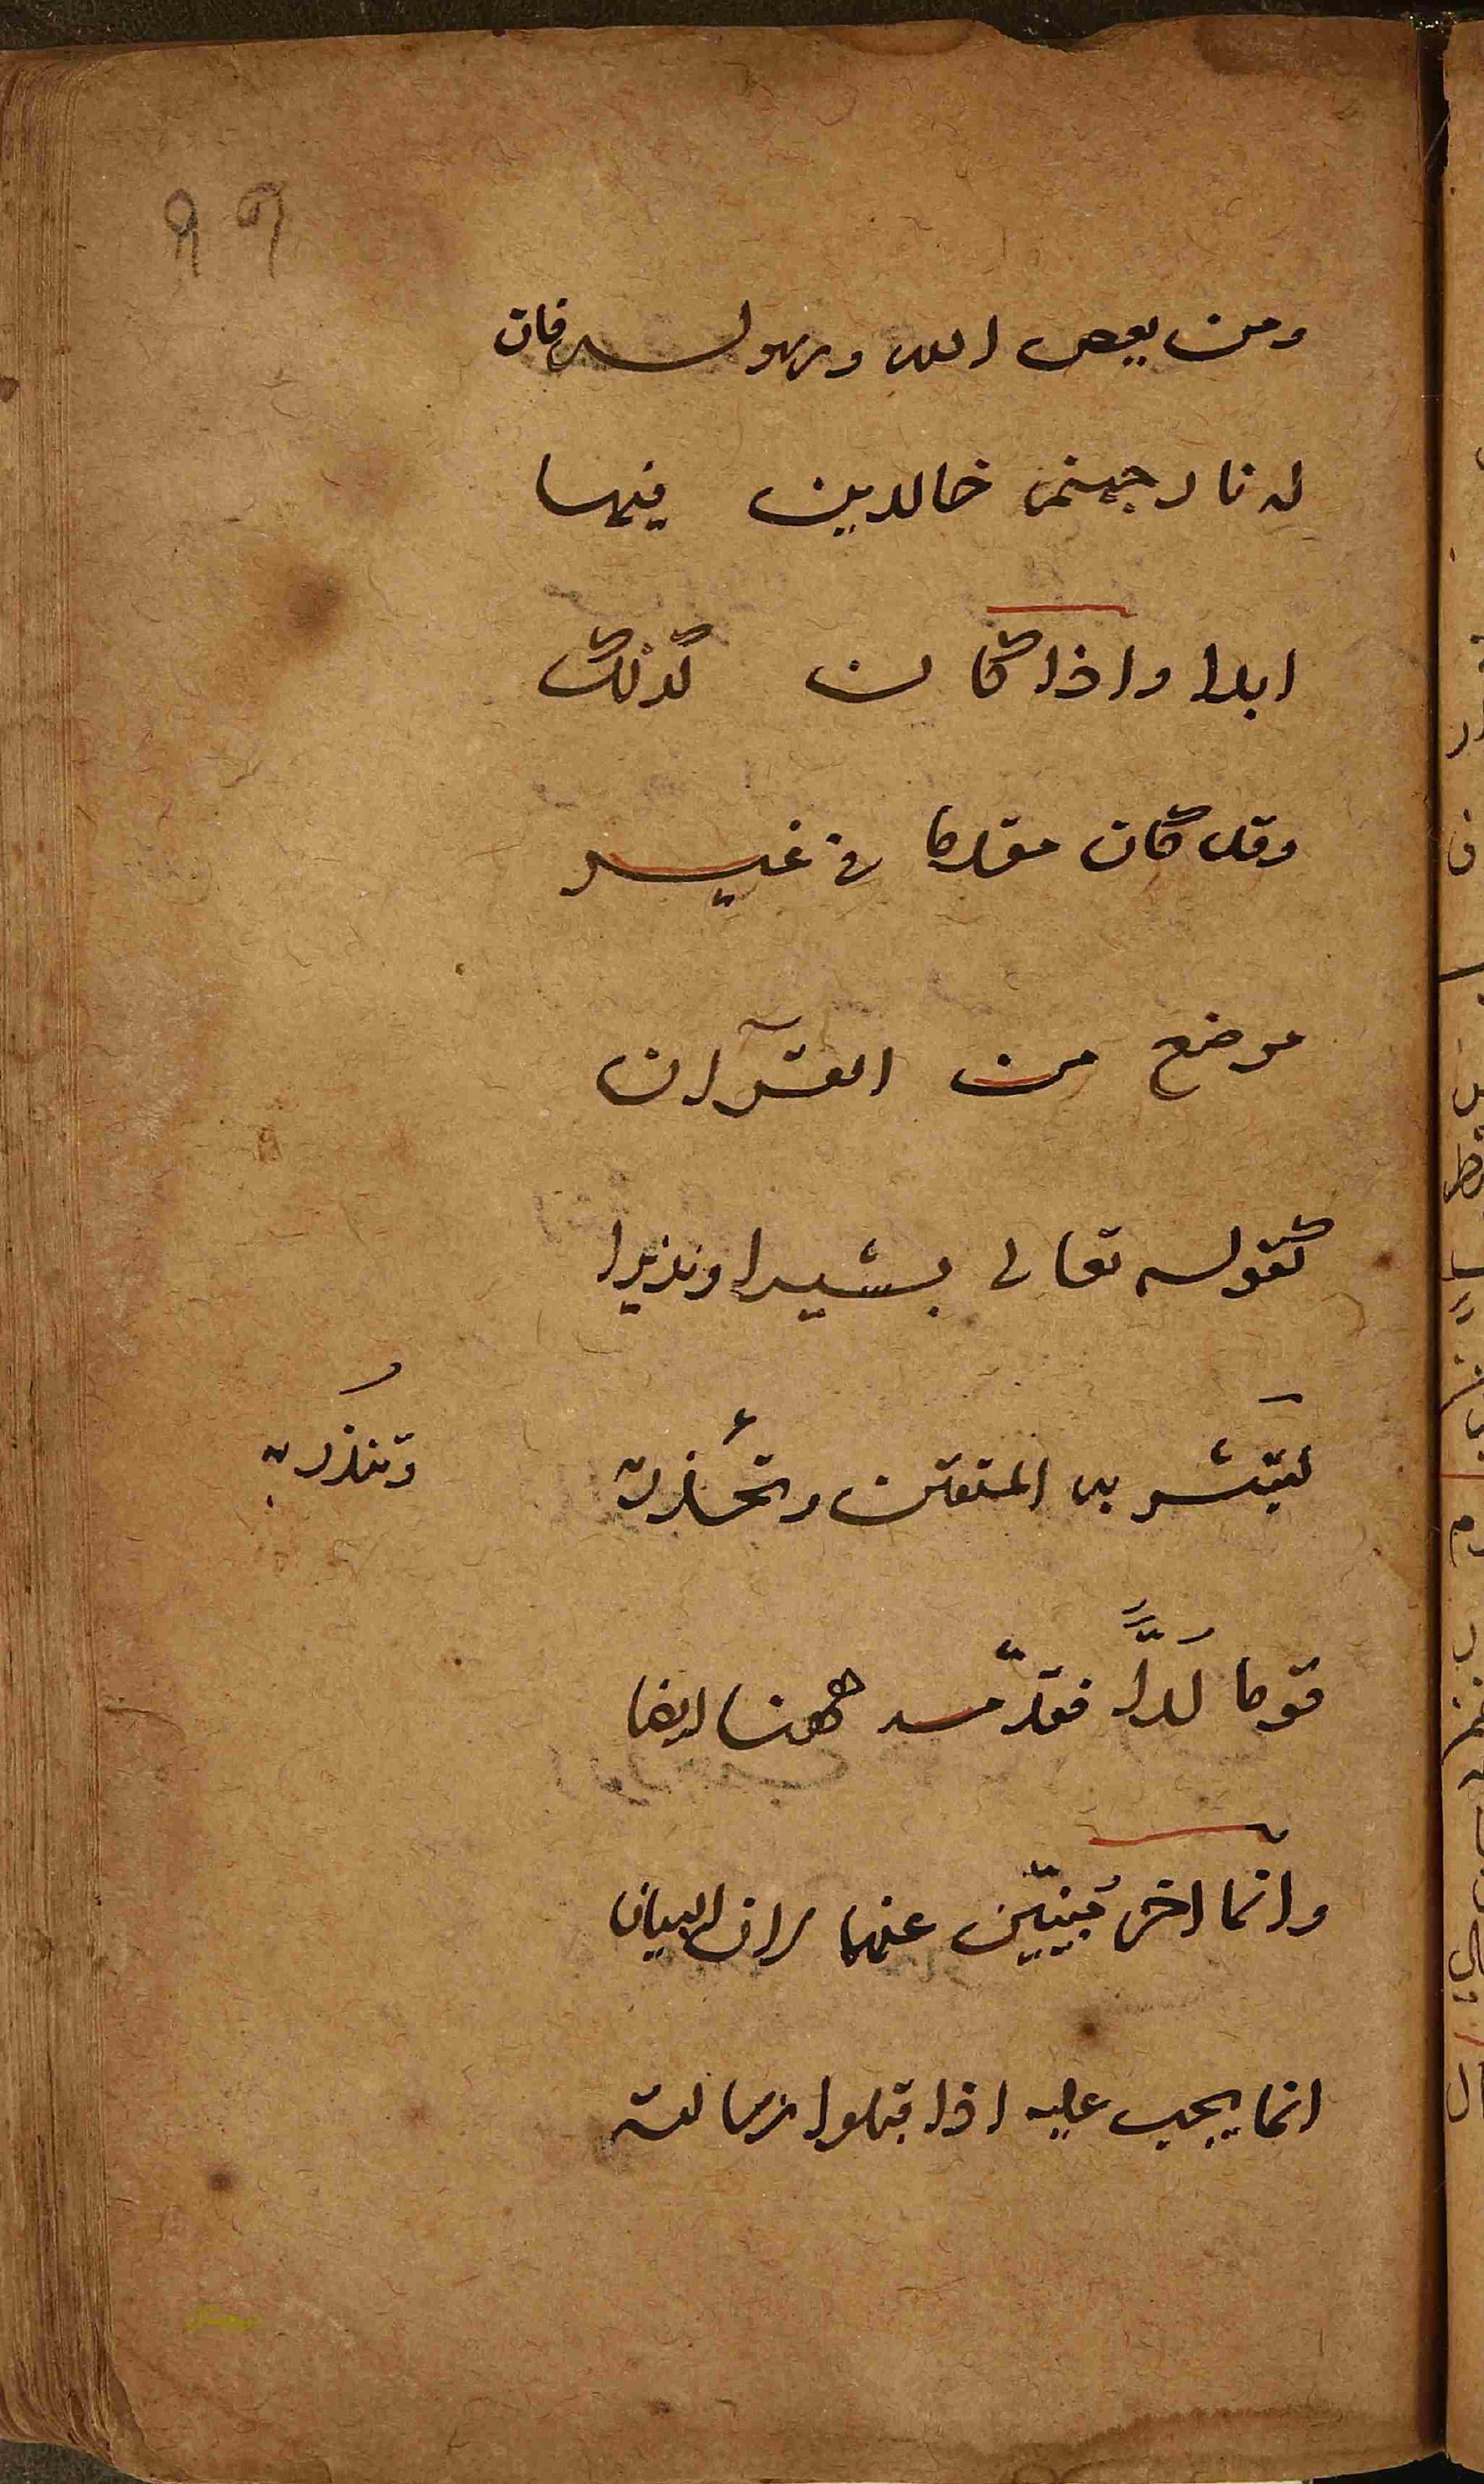 ٩٩
ومن يعص الله ورسوله فان
له نار جهنم خالدين فيها
ابدا واذا كان كذلك
وقد كان مقدما في غير
موضع من القرآن
كقوله تعالى بشيرا ونذيرا
لتبشر به المتقين وتحذر به
وتنذر به
قوما لدّاً فقدّمه ههنا ايضا
وانّما اخر مُبيّن عنهما لان البيان
انما يجب عليه اذا قبلوا رسالته